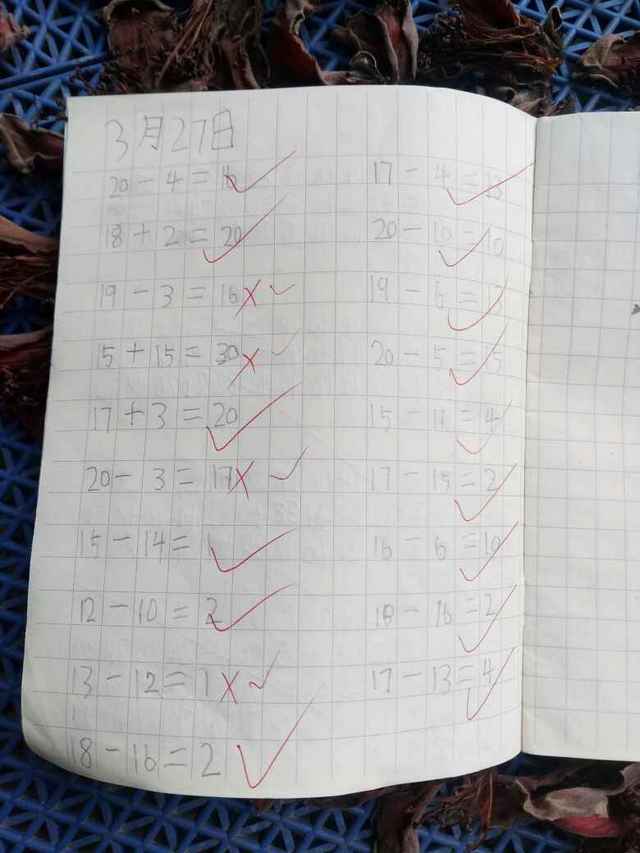 3月27日
20-4=16
18+2=20
19-3=16
15+15=30
17+3=20
20-3=17
15-14=1
12-10=2
13-12=1
18-16=2
17-4=13
20-10=10
19-6=13
20-5=15
15-11=4
17-15=2
16-6=10
18-16=2
17-13=4